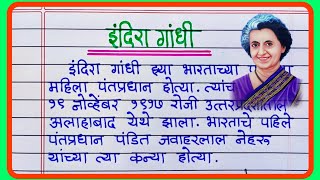 इंदिरा गांधी
इंदिरा गांधी ह्या भारताच्या
महिला पंतप्रधान होत्या.
१९ नोव्हेंबर १९१७ रोजी उत्तरप्रदेशातील
अलाहाबाद येथे झाला. भारताचे पहिले
पंतप्रधान पंडित जवाहरलाल नेहरू
यांच्या त्या कन्या होत्या.